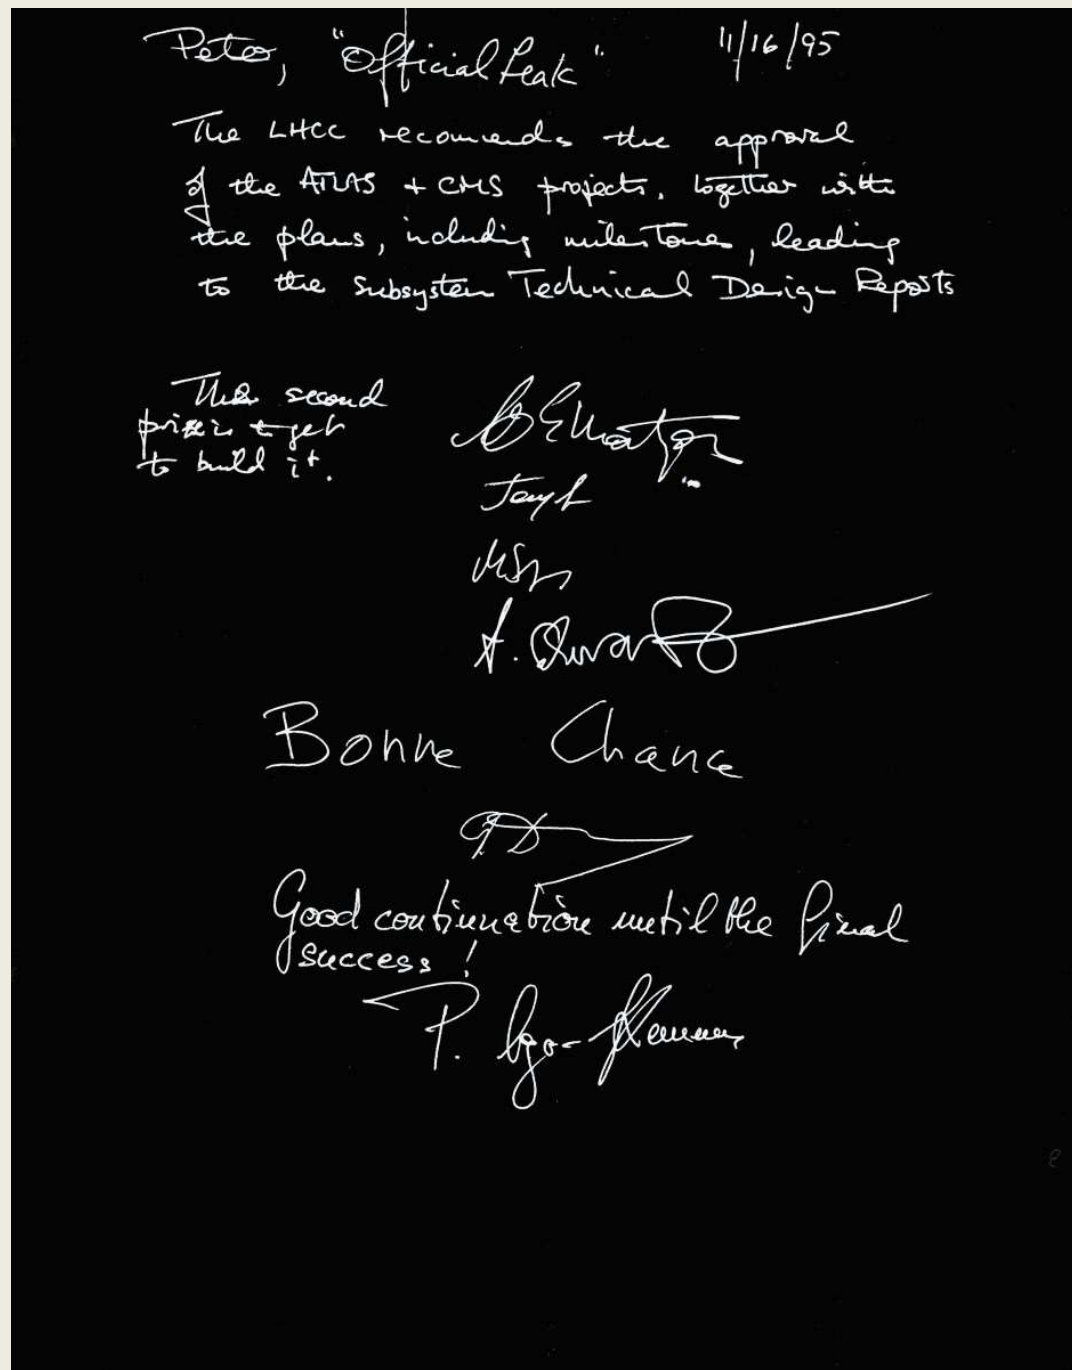 Peter, "Official Leak" 11/16/95
The LHCC recomends the approval
of the ATLAS + CMS projects, together with
the plans, including milestones, leading
to the Subsystem Technical Design Reports
The second
prize is to get
to build it.
Bonne Chance
Good continuation until the final
success!
P.